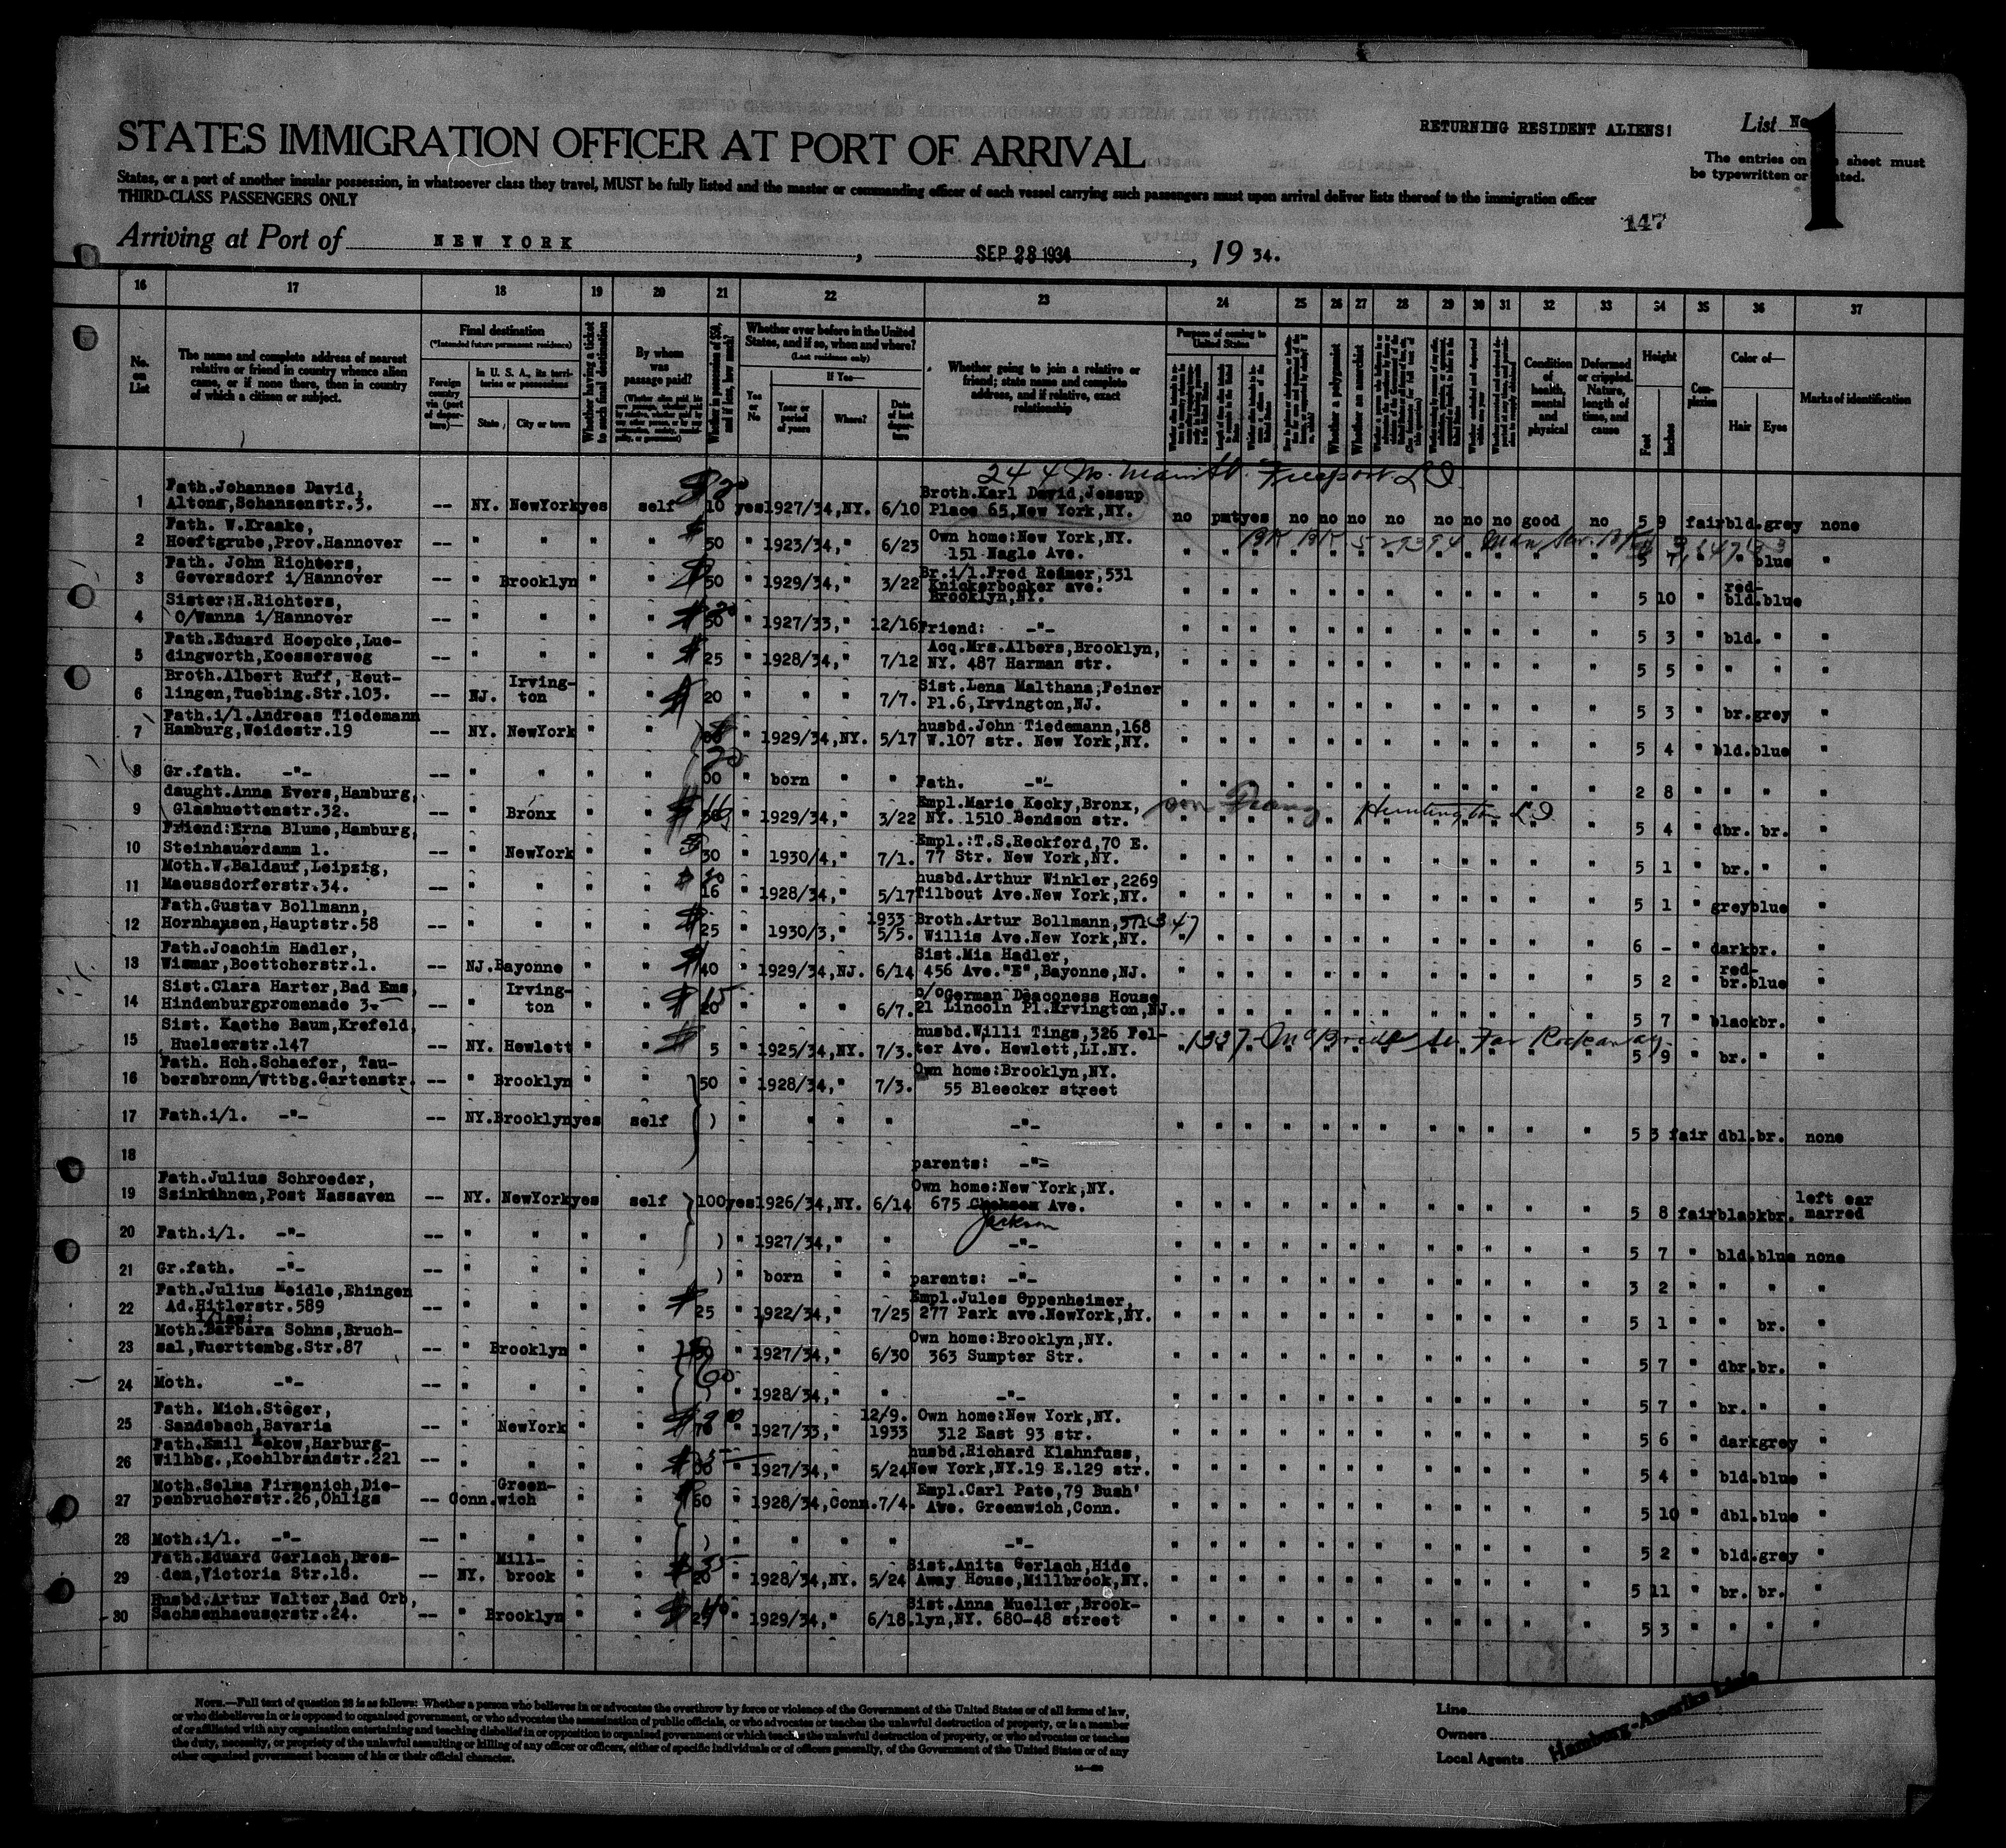 RETURNING RESIDENT ALIENS!
List No. 1
STATES IMMIGRATION OFFICER AT PORT OF ARRIVAL
The entries on sheet must
be typewritten or
States, or a port of another insular possession, in whatsoever class they travel, MUST be fully listed and the master or commanding officer of each vessel carrying such passengers must upon arrival deliver lists thereof to the immigration officer
THIRD-CLASS PASSENGERS ONLY
147
Arriving at Port of NEW YORK, SEP 28 1934, 19 34.
16 17 18 19 20 21 22 23 24 25 26 27 28 29 30 31 32 33 34 35 36 37
No. on List
The name and complete address of nearest relative or friend in country whence alien came, or if none there, then in country of which a citizen or subject.
Final destination
(*Intended future permanent residence)
Foreign country via (port of departure)—
In U. S. A., its territories or possessions
State City or town
Whether having a ticket to such final destination
By whom was passage paid?
Whether in possession of $50, and if less, how much?
Whether ever before in the United States, and if so, when and where?
(Last residence only)
Yes or No
If Yes—
Year or period of years Where? Date of last departure
Whether going to join a relative or friend; state name and complete address, and if relative, exact relationship
Purpose of coming to United States
Whether a polygamist
Whether an anarchist
Condition of health, mental and physical
Deformed or crippled. Nature, length of time, and cause
Height
Feet Inches
Complexion
Color of—
Hair Eyes
Marks of identification
Freeport L I
1 Fath.Johannes David, Altona,Schansenstr.3. -- NY. NewYork yes self 10 yes 1927/34,NY. 6/10 Broth.Karl David,Jessup Place 65,New York,NY. no pmt yes no no no no no no no good no 5 9 fair bld. grey none
2 Fath. W.Kraake, Hoeftgrube,Prov.Hannover -- " " " " 50 " 1923/34," 6/23 Own home:New York,NY. 151 Nagle Ave. " 5 7 " " blue "
3 Fath. John Richters, Geversdorf i/Hannover -- " Brooklyn " " 50 " 1929/34," 3/22 Br.i/l.Fred Redmer,531 Knickerbocker ave. Brooklyn,NY. 5 10 " red-bld. blue
4 Sister:H.Richters, O/Wanna i/Hannover -- " " " " 50 " 1927/33," 12/16 Friend: -"- 5 3 " bld. " "
5 Fath.Eduard Hoepcke,Luedingworth,Koessersweg -- " " " " 25 " 1928/34," 7/12 Acq.Mrs.Albers,Brooklyn, NY. 487 Harman str. 5 5 " " " "
6 Broth.Albert Ruff, Reutlingen,Tuebing.Str.103. -- NJ. Irvington " " 20 " " " 7/7. Sist.Lena Malthana,Feiner Pl.6,Irvington,NJ. 5 3 " br. grey "
7 Fath.i/l.Andreas Tiedemann Hamburg,Weidestr.19 -- NY. NewYork " " " 1929/34,NY. 5/17 husbd.John Tiedemann,168 W.107 str. New York,NY. 5 4 " bld. blue "
8 Gr.fath. -"- -- " " " " 00 " born " " Fath. -"- 2 8 " " " "
9 daught.Anna Evers,Hamburg, Glashuettenstr.32. -- " Bronx " " " 1929/34," 3/22 Empl.Marie Kecky,Bronx, NY. 1510 Bendson str. Huntington L I 5 4 " dbr. br. "
10 Friend:Erna Blume,Hamburg, Steinhauerdamm 1. -- " NewYork " " 30 " 1930/4," 7/1. Empl.:T.S.Reckford,70 E. 77 Str. New York,NY. 5 1 " br. " "
11 Moth.W.Baldauf,Leipzig, Maeussdorferstr.34. -- " " " " 16 " 1928/34," 5/17 husbd.Arthur Winkler,2269 Tilbout Ave.New York,NY. 5 1 " grey blue "
12 Fath.Gustav Bollmann, Hornhausen,Hauptstr.58 -- " " " " 25 " 1930/3," 1933 5/5. Broth.Artur Bollmann, Willis Ave.New York,NY. 6 - " dark br. "
13 Fath.Joachim Hadler, Wismar,Boettcherstr.1. -- NJ. Bayonne " " 40 " 1929/34,NJ. 6/14 Sist.Mia Hadler, 456 Ave."E",Bayonne,NJ. 5 2 " red-br. blue "
14 Sist.Clara Harter,Bad Ems, Hindenburgpromenade 3- -- " Irvington " " 20 " " " 6/7. c/oGerman Deaconess House 21 Lincoln Pl.Ervington,NJ. 5 7 " black br. "
15 Sist. Kaethe Baum,Krefeld, Huelserstr.147 -- NY. Hewlett " " 5 " 1925/34,NY. 7/3. husbd.Willi Tings,326 Felter Ave. Hewlett,LI.NY. 1337 McBride St. Far Rockaway 5 9 " br. " "
16 Fath. Hch.Schaefer, Taubersbronn/Wttbg.Gartenstr. -- " Brooklyn " " 50 " 1928/34," 7/3. Own home:Brooklyn,NY. 55 Bleecker street
17 Fath.i/l. -"- -- NY. Brooklyn yes self ) " " " " -"- 5 3 fair dbl. br. none
18 parents: -"-
19 Fath.Julius Schroeder, Szinkuhnen,Post Nassaven -- NY. NewYork yes self 100 yes 1926/34,NY. 6/14 Own home:New York,NY. 675 Jackson Ave. 5 8 fair black br. left ear marred
20 Fath.i/l. -"- -- " " " " ) " 1927/34," " -"- 5 7 " bld. blue none
21 Gr.fath. -"- -- " " " " ) " born " " parents: -"- 3 2 " " " "
22 Fath.Julius Meidle,Ehingen Ad.Hitlerstr.589 -- " " " " 25 " 1922/34," 7/25 Empl.Jules Oppenheimer, 277 Park ave.NewYork,NY. 5 1 " " br. "
23 i/law: Moth.Barbara Sohns,Bruchsal,Wuerttembg.Str.87 -- " Brooklyn " " " 1927/34," 6/30 Own home:Brooklyn,NY. 363 Sumpter Str. 5 7 " dbr. br. "
24 Moth. -"- -- " " " " 60 " 1928/34," " -"- 5 7 " br. " "
25 Fath. Mich.Steger, Sandsbach,Bavaria -- " NewYork " " " 1927/33," 12/9. 1933 Own home:New York,NY. 312 East 93 str. 5 6 " dark grey "
26 Fath.Emil Mekow,Harburg-Wilhbg.,Koehlbrandstr.221 -- " " " " " 1927/34," 5/24 husbd.Richard Klahnfuss, New York,NY.19 E.129 str. 5 4 " bld. blue "
27 Moth.Selma Firmenich,Diepenbrucherstr.26,Ohligs -- Conn. Greenwich " " 60 " 1928/34,Conn. 7/4. Empl.Carl Pate,79 Bush Ave. Greenwich,Conn. 5 10 " dbl. blue "
28 Moth.i/l. -"- -- " " " " ) " " " " -"- 5 2 " bld. grey "
29 Fath.Eduard Gerlach,Dresden,Victoria Str.18. -- NY. Millbrook " " 20 " 1928/34,NY. 5/24 Sist.Anita Gerlach,Hide Away House,Millbrook,NY. 5 11 " br. br. "
30 Husbd.Artur Walter,Bad Orb, Sachsenhaeuserstr.24. -- " Brooklyn " " 25 " 1929/34," 6/18. Sist.Anna Mueller,Brooklyn,NY. 680-48 street 5 3 " " " "
NOTE.—Full text of question 28 is as follows: Whether a person who believes in or advocates the overthrow by force or violence of the Government of the United States or of all forms of law,
or who disbelieves in or is opposed to organized government, or who advocates the assassination of public officials, or who advocates or teaches the unlawful destruction of property, or is a member
of or affiliated with any organization entertaining and teaching disbelief in or opposition to organized government or which teaches the unlawful destruction of property, or who advocates or teaches
the duty, necessity, or propriety of the unlawful assaulting or killing of any officer or officers, either of specific individuals or of officers generally, of the Government of the United States or of any
other organized government because of his or their official character.
Line
Owners
Local Agents
Hamburg-Amerika Linie